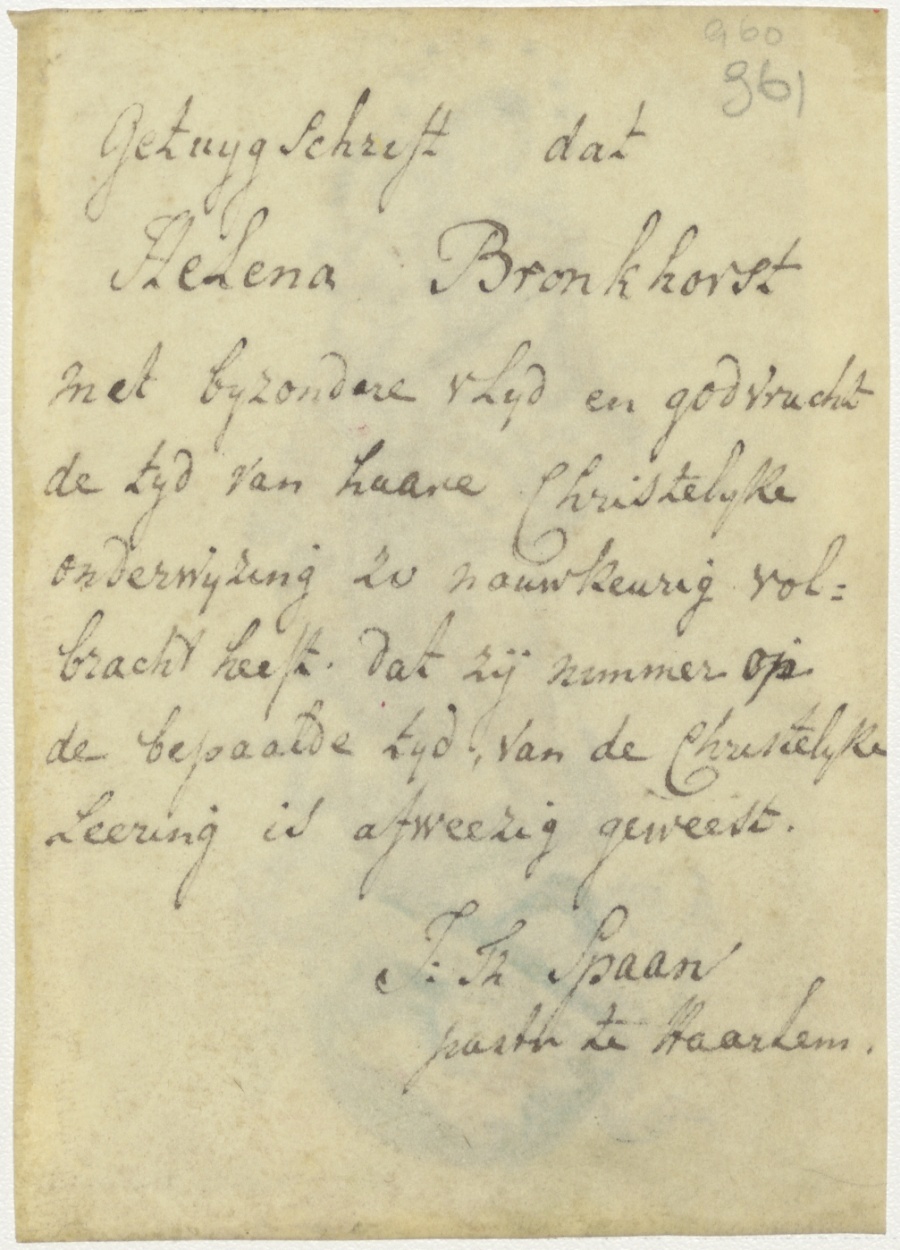 960
961
Getuygschrift dat
Helena Bronkhorst
met byzondere vlyd en godvrucht
de tyd van haare Christelyke
onderwyzing zo nauwkeurig vol=
bracht heeft. dat zij nimmer op
de bepaalde tyd, van de Christelyke
Leering is afweezig geweest.
J: Th Spaan
pastr te Haarlem.